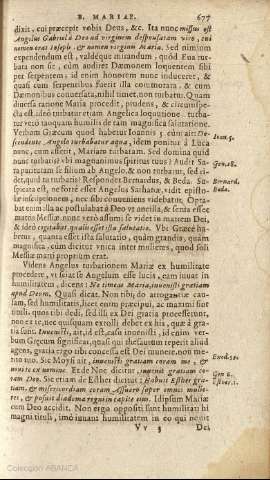 B. MARIAE. 677
dixit, cui præcepit vobis Deus, &c. Ita nunc missus est
Angelus Gabriel à Deo ad virginem desponsatam viro, cui
nomen erat Ioseph, & nomen virginis Maria. Sed nimium
expendendum est, valdéque mirandum, quòd Eua
batà non se, cùm audiret Dæmonem loquentem sibi
per serpentem, id enim honorem nunc induceret, &
quasi cum serpentibus fuerit illa commorata, & cum
Dæmonibus conuersata, nihil timet, non turbatur. Quàm
diuersa ratione Maria procedit, prudens, &
specta est illa, ideò turbatur etiam Angelica loquutione.
tur verò tanquam humilis de tam magnifica salutatione.
Verbum Græcum quod habetur Ioannis 5. cùm ait: De-
scendente Angelo turbabatur aqua, idem ponitur à Luca
nunc, cùm asserit, Mariam turbatam. Sed domina quid
nunc turbaris? vbi magnanimus spiritus tuus? Audit Sa-
ra puritatem se filium ab Angelo, & non turbatur, sed ri-
det, quid tu turbaris? Respondet Bernardus, & Beda. Su-
specta est, ne fortè esset Angelus Sathanæ, vidit
se inscipionem, nec sibi conueniens videbatur, Opta-
bat enim illa ac postulabat à Deo vt ancilla, & serua esset
matris Messiæ, nunc verò assumi se videt in matrem Dei,
& ideò cogitabat qualis esset ista salutatio. Vbi Græcè ha-
betur, quanta esset ista salutatio, quàm grandis, quàm
magnifica, cùm dicitur vnica inter mulieres, quod soli
Messiæ matri proprium erat.
Videns Angelus turbationem Mariæ ex humilitate
procedere, vt sciat se Angelum esse lucis, eam iuuat in
humilitatem, dicens: Ne timeas Maria, inuenisti gratiam
apud Deum. Quasi dicat. Non tibi do arrogantiæ cau-
sam, sed humilitatis, licet enim præcipui, ac maximi sint
tituli, quos tibi dedi, sed illi ex Dei gratia processerunt,
non ex te, nec quisquam extolli debet ex his, quæ à gra-
tia sunt. Inuenisti, ait, id est, casu inuenisti, id enim ver-
bum Græcum significat, quasi qui thesaurum reperit aliud
agens, gratia ergo tibi concessa est Dei munere, non me-
rito tuo. Sic Moysi ait, inuenisti gratiam coram me, &
nouite ex nomine. Et de Noe dicitur, inuenit gratiam co-
ram Deo. Sic etiam de Esther dicitur: Habuit Esther gra-
tiam, & misericordiam coram Assuero super omnes mulie-
res, & posuit diadema regni in capite eius. Id ipsum Mariæ
cum Deo accidit. Non ergo oppositi sunt humilitati hi
magni tituli, imò iuuant humilitatem in eo qui
Vv 3 Dei
Ioan. 5.
Gen. 18.
Bernard.
Beda.
Exod. 33.
Gen. 6.
Esther. 2.
Colección ABANCA